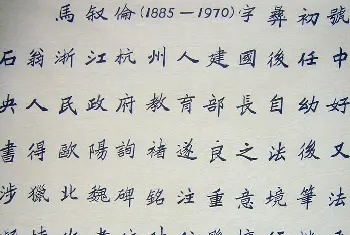 馬叙倫(1885－1970)字彝初號
石翁浙江杭州人建國後任中
央人民政府教育部長自幼好
書得歐陽詢褚遂良之法後又
涉獵北魏碑銘注重意境筆法